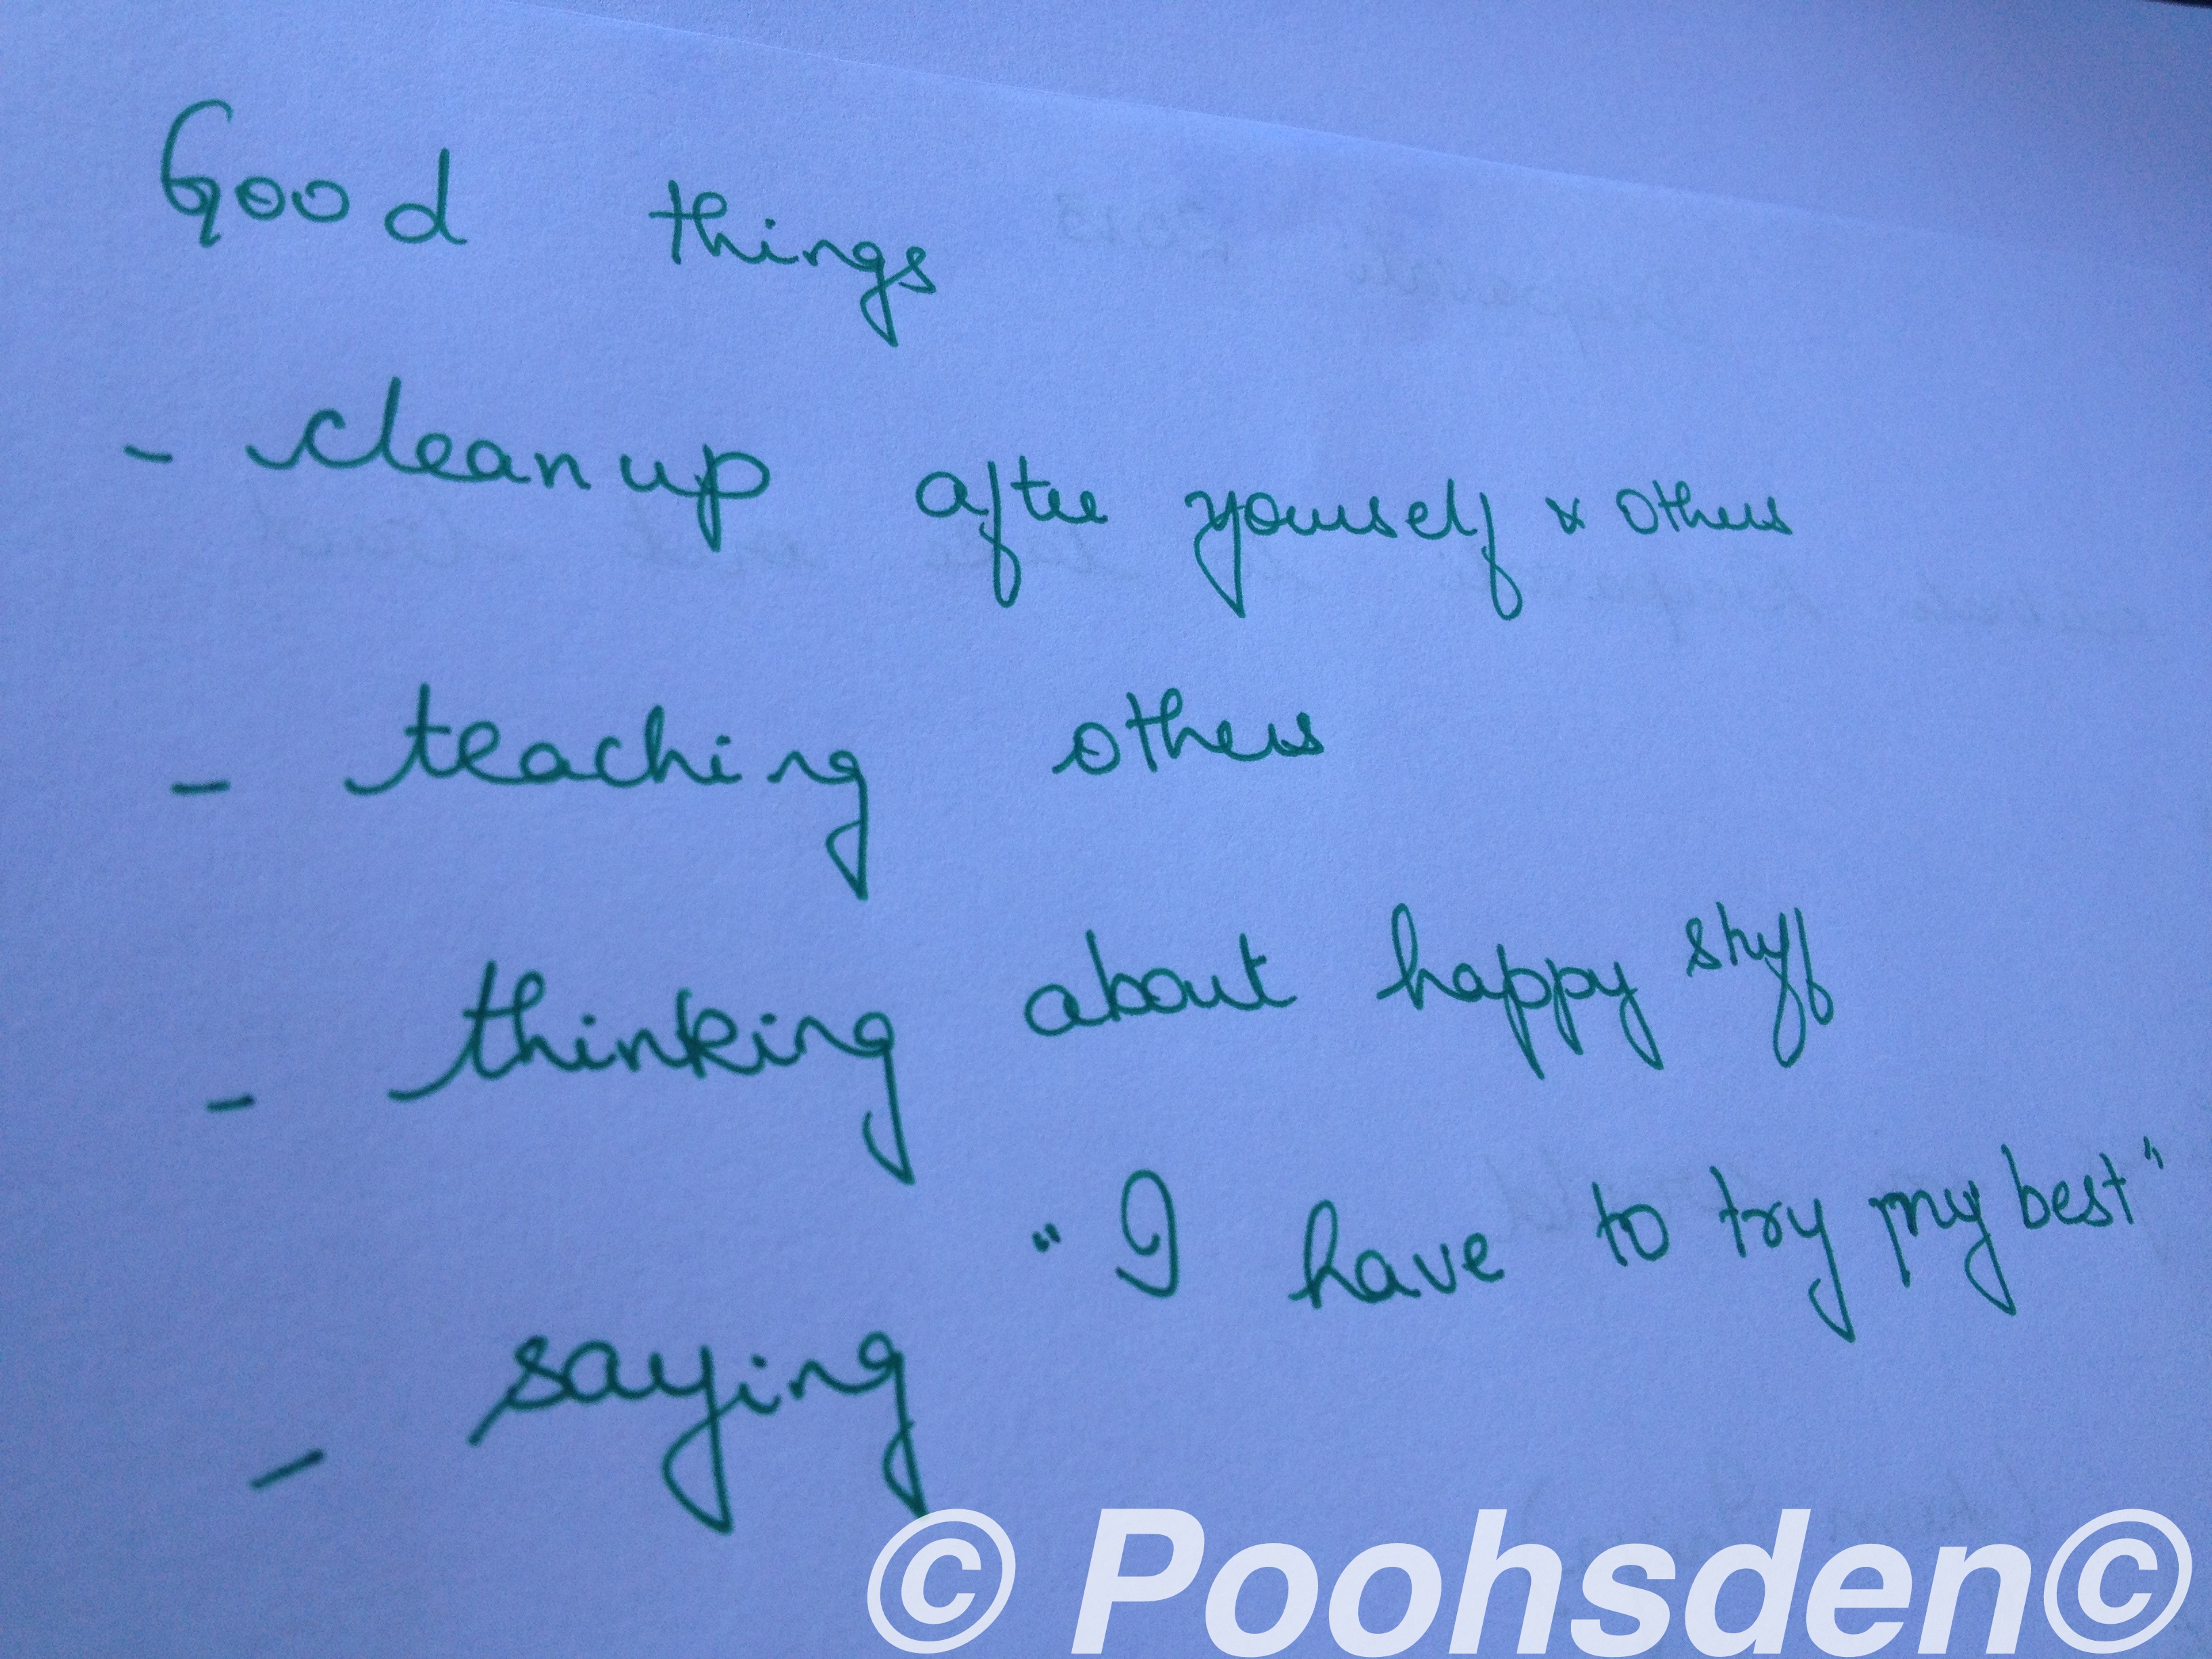 Good things
- clean up after yourself & others
- teaching others
- thinking about happy stuff
- saying "I have to try my best"
© Poohsden©